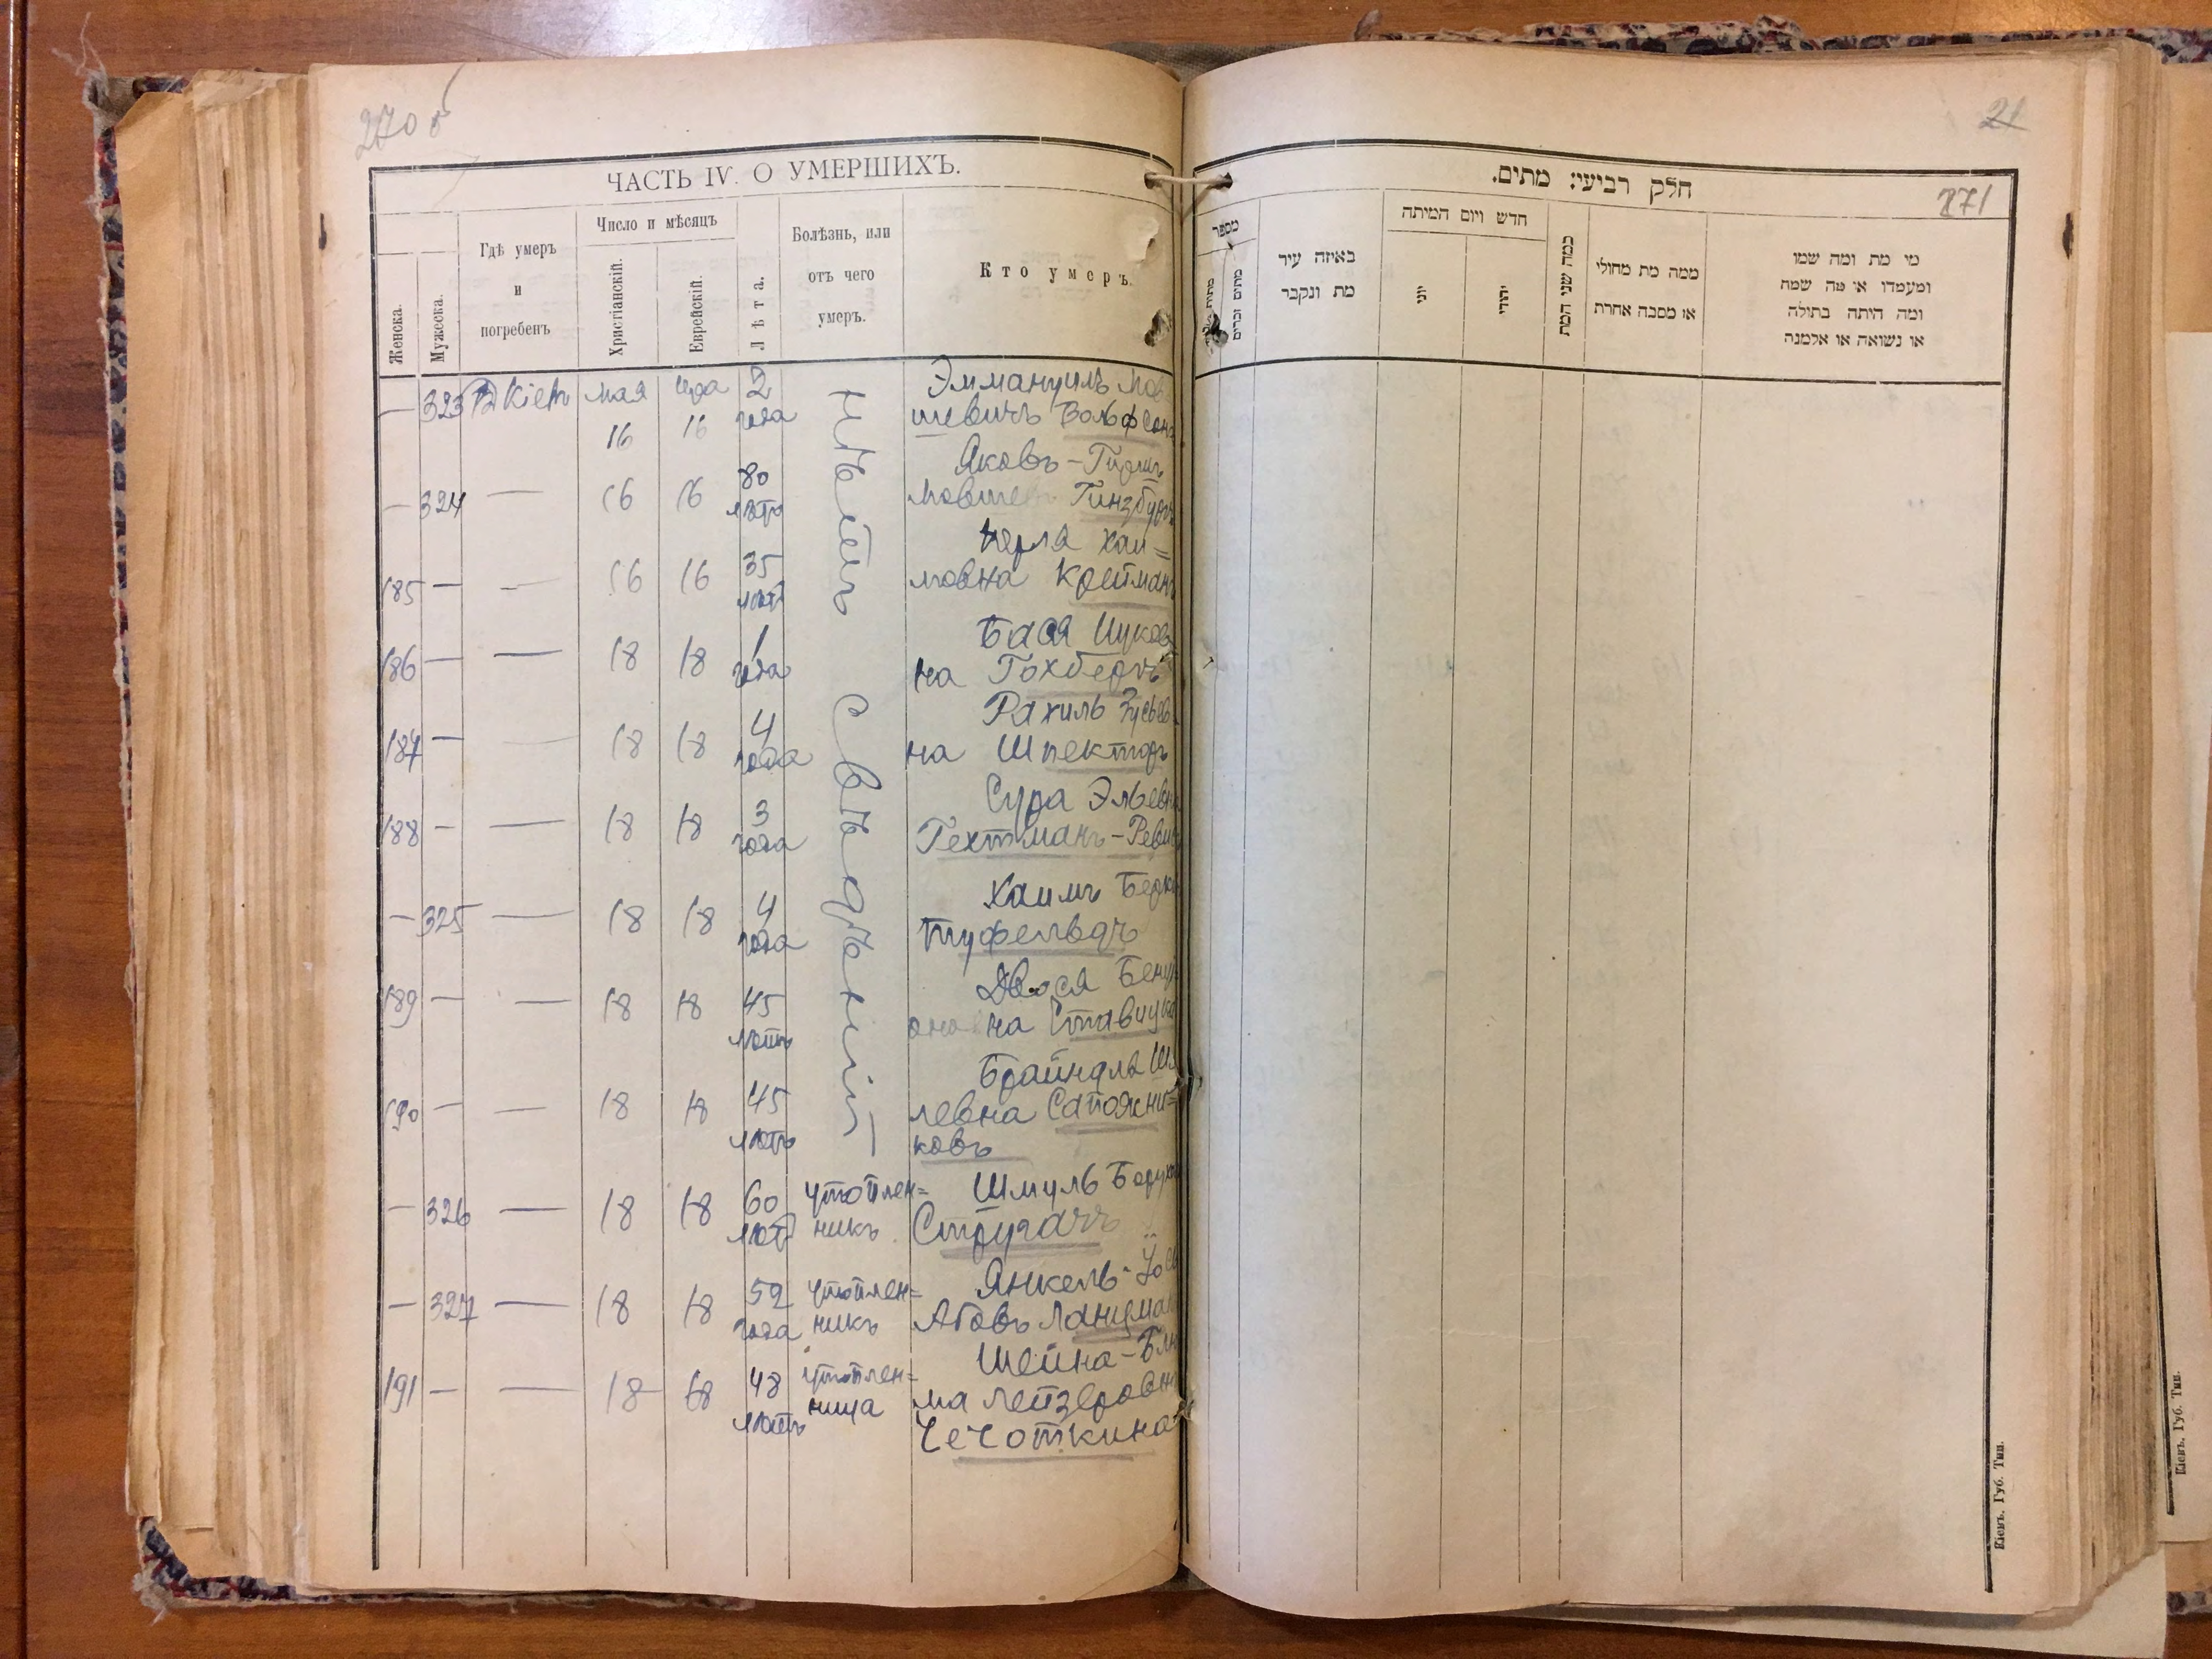 270 об
ЧАСТЬ IV. О УМЕРШИХЪ.
Женска.
Мужеска.
Гдѣ умеръ
и
погребенъ
Число и мѣсяцъ
Христіанскій.
Еврейскій.
Лѣта.
Болѣзнь, или
отъ чего
умеръ.
Кто умеръ.
Нѣтъ свѣдѣній
— 323 Кіевъ мая 16 16 2 года Эммануилъ Мов
шевичъ Вольфсонъ
— 324 — 16 16 80 лѣтъ Яковъ-
Мовшев Гинзбургъ
185 — — 16 16 35 лѣтъ Перля Хаи=
мовна Крейтманъ
186 — — 18 18 1 года Бася Ицков
на Гохбергъ
187 — — 18 18 4 года Рахиль Зусьев
на Шпекторъ
188 — — 18 18 3 года Сура Эльевна
Гехтманъ-
— 325 — 18 18 4 года Хаимъ Берко
189 — — 18 18 45 лѣтъ Двося Бенці
оновна Ставицка
190 — — 18 18 45 лѣтъ Брайндля Ш
левна Сапожни=
ковъ
— 326 — 18 18 60 лѣтъ утоплен=
никъ Шмуль Борух
Стругачъ
— 327 — 18 18 52 года утоплен=
никъ Янкель-
Абовъ Ланцман
191 — — 18 18 48 лѣтъ утоплен=
ница Шейна-Блю
ма Лейзеровн
Чечоткина
21
חלק רביעי: מתים.
271
מספר
מתים זכרים
באיזה עיר
מת ונקבר
חדש ויום המיתה
יוני
יהודי
כמה שני המת
ממה מת מחולי
או מסבה אחרת
מי מת ומה שמו
ומעמדו או מה שמה
ומה היתה בתולה
או נשואה או אלמנה
Кіевъ. Губ. Тип.
Кіевъ. Губ. Тип.